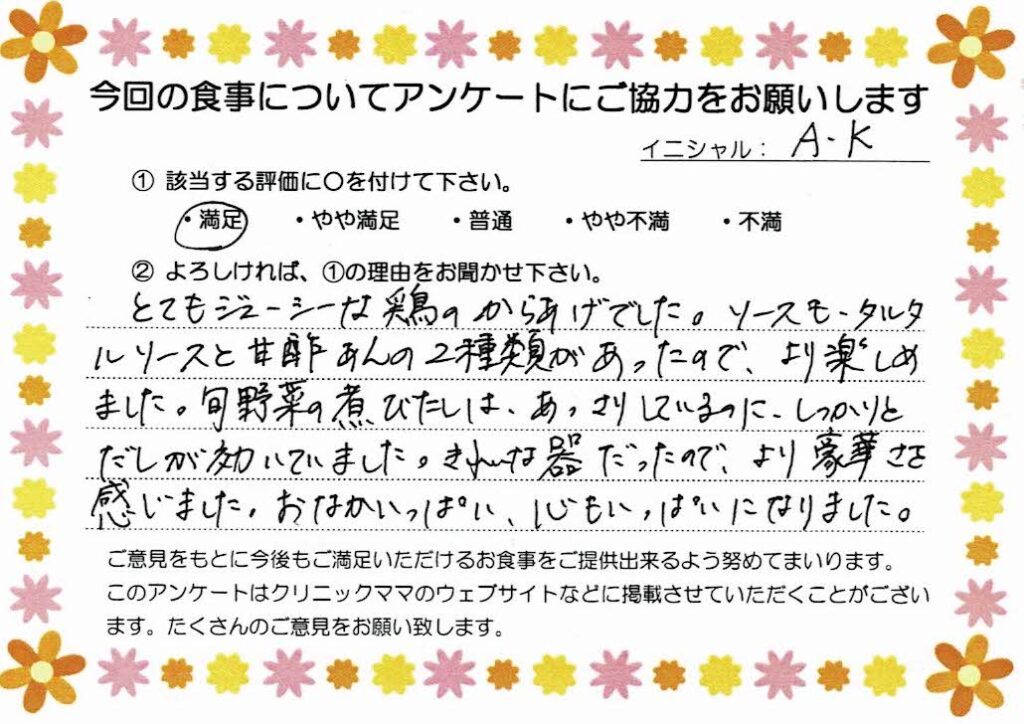 今回の食事についてアンケートにご協力をお願いします
イニシャル： A-K
① 該当する評価に〇を付けて下さい。
・満足 ・やや満足 ・普通 ・やや不満 ・不満
② よろしければ、①の理由をお聞かせ下さい。
とてもジューシーな鶏のからあげでした。ソースも・タルタ
ルソースと甘酢あんの2種類があったので、より楽しめ
ました。旬野菜の煮びたしは、あっさりしているのに、しっかりと
だしが効いていました。きれいな器だったので、より豪華さを
感じました。おなかいっぱい、心もいっぱいになりました。
ご意見をもとに今後もご満足いただけるお食事をご提供出来るよう努めてまいります。
このアンケートはクリニックママのウェブサイトなどに掲載させていただくことがござい
ます。たくさんのご意見をお願い致します。